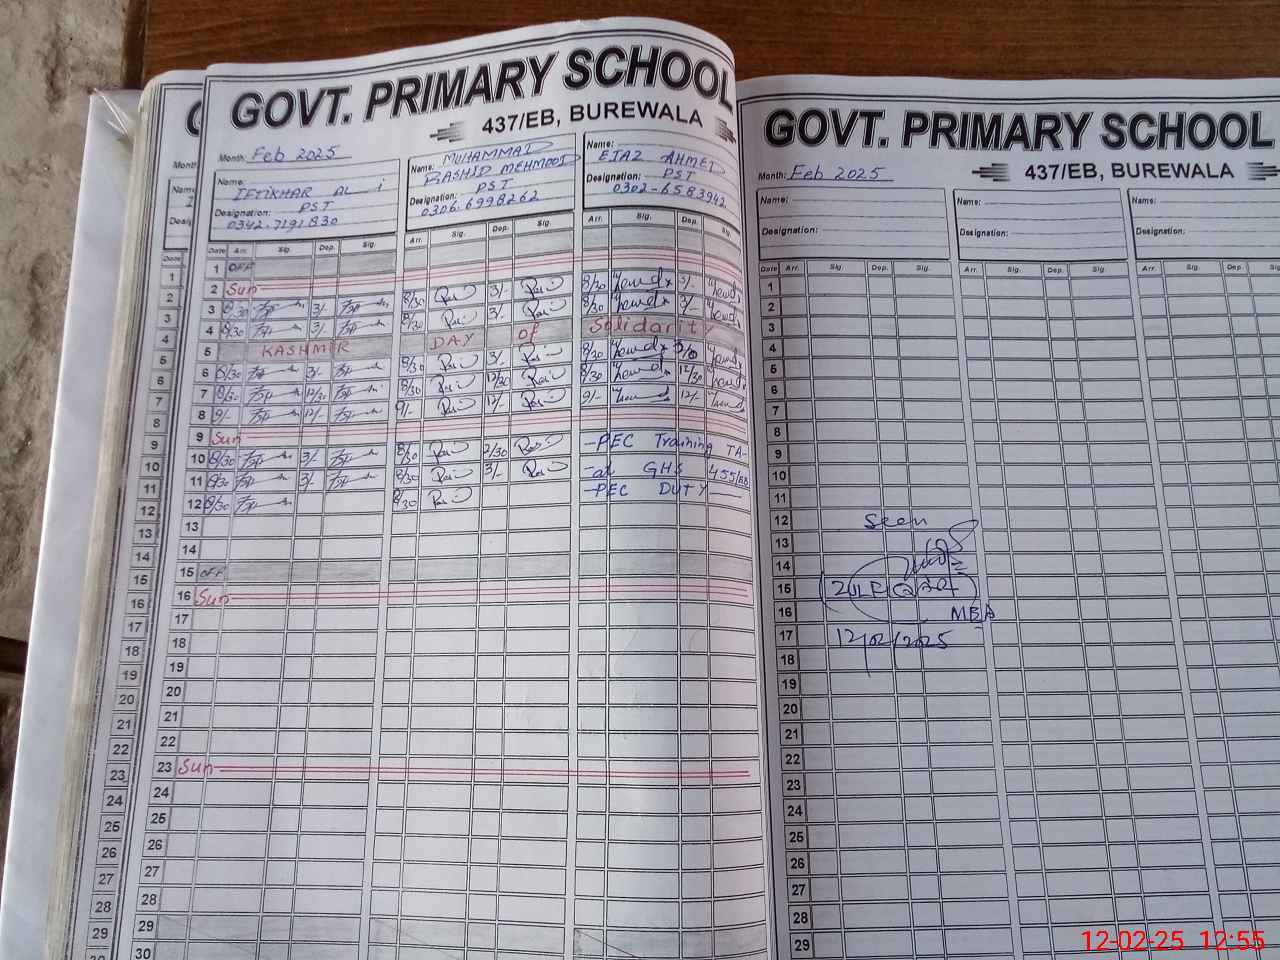 GOVT. PRIMARY SCHOOL
437/EB, BUREWALA
Month: Feb 2025
Name: IFTIKHAR ALI
Designation: PST
0342.7191830
Name: MUHAMMAD
RASHID MEHMOOD
Designation: PST
0306.6998262
Name: EJAZ AHMED
Designation: PST
0302-6583942
Date Arr. Sig. Dep. Sig. Arr. Sig. Dep. Sig. Arr. Sig. Dep. Sig.
1 OFF
2 Sun
3 8/30 3/- 8/30 3/- 8/30 3/-
4 8/30 3/- 8/30 3/- 8/30 3/-
5 KASHMIR DAY of Solidarity
6 8/30 3/- 8/30 3/- 8/30
7 8/30 12/30 8/30 12/30 8/30 12/30
8 9/- 12/- 9/- 12/- 9/- 12/-
9 Sun
10 8/30 3/- 8/30 2/30 -PEC Training TA-
11 8/30 3/- 8/30 3/- -at GHS 455/EB
12 8/30 8/30 -PEC DUTY-
13
14
15 OFF
16 Sun
17
18
19
20
21
22
23 Sun
24
25
26
27
28
29
30
GOVT. PRIMARY SCHOOL
437/EB, BUREWALA
Month: Feb 2025
Name: Name: Name:
Designation: Designation: Designation:
Date Arr. Sig. Dep. Sig. Arr. Sig. Dep. Sig. Arr. Sig. Dep.
1
2
3
4
5
6
7
8
9
10
11
12 Seen
13
14
15
16 MBA
17 12/02/2025
18
19
20
21
22
23
24
25
26
27
28
29
12-02-25 12:55